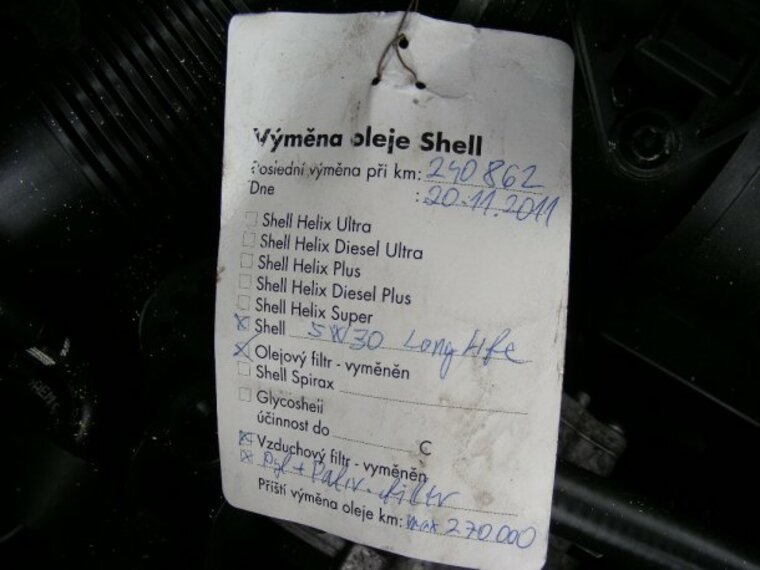 Výměna oleje Shell
Poslední výměna při km: 240 862
Dne : 20.11.2011
Shell Helix Ultra
Shell Helix Diesel Ultra
Shell Helix Plus
Shell Helix Diesel Plus
Shell Helix Super
Shell 5W30 Long Life
Olejový filtr - vyměněn
Shell Spirax
Glycoshell
účinnost do C
Vzduchový filtr - vyměněn
Pyl + Paliv. filtr
Příští výměna oleje km: max 270.000